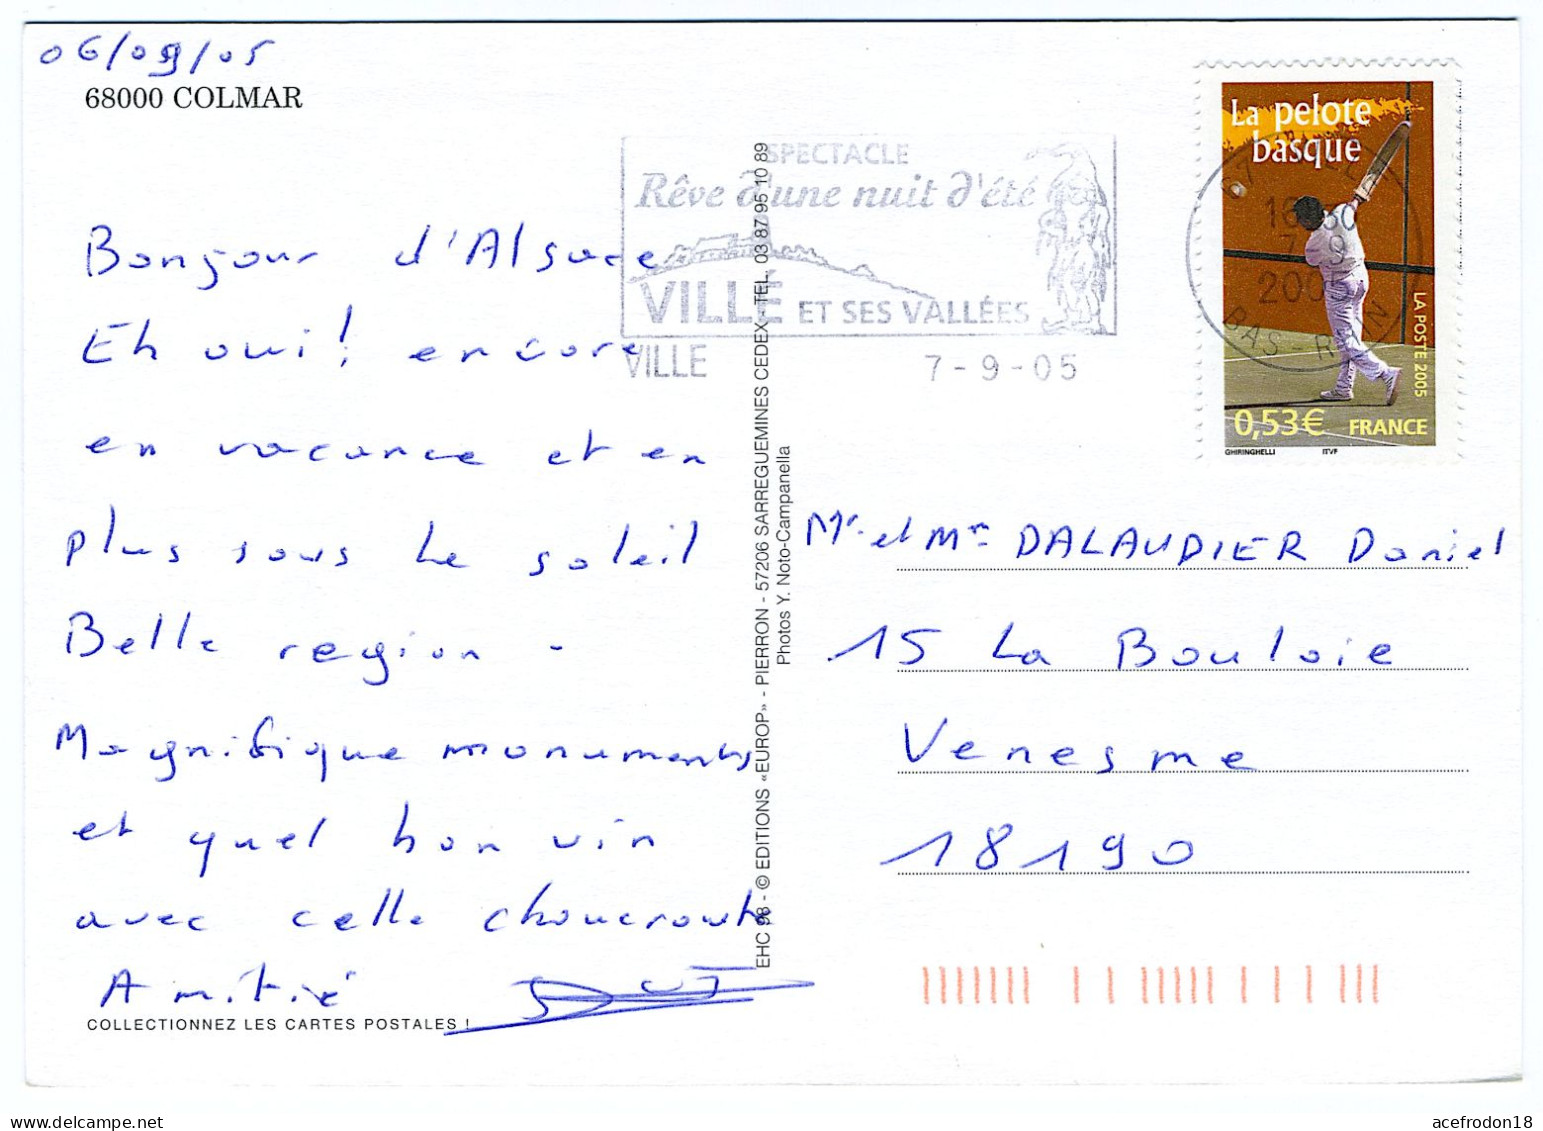 06/09/05
68000 COLMAR
Bonjour d'Alsace
Eh oui! encore
en vacance et en
plus sous le soleil
Belle region -
Magnifique monuments
et quel bon vin
avec celle choucroute
Amitié
COLLECTIONNEZ LES CARTES POSTALES !
EHC 98 - © EDITIONS «EUROP» - PIERRON - 57206 SARREGUEMINES CEDEX - TEL. 03 87 95 10 89
Photos Y. Noto-Campanella
SPECTACLE
Rêve d'une nuit d'été
VILLÉ ET SES VALLÉES
VILLE 7-9-05
La pelote
basque
LA POSTE 2005
0,53€ FRANCE
GHIRINGHELLI ITVF
67
7-9
2005
BAS RHIN
Mr et Mm DALAUDIER Daniel
15 La Bouloie
Venesme
18190
acefrodon18